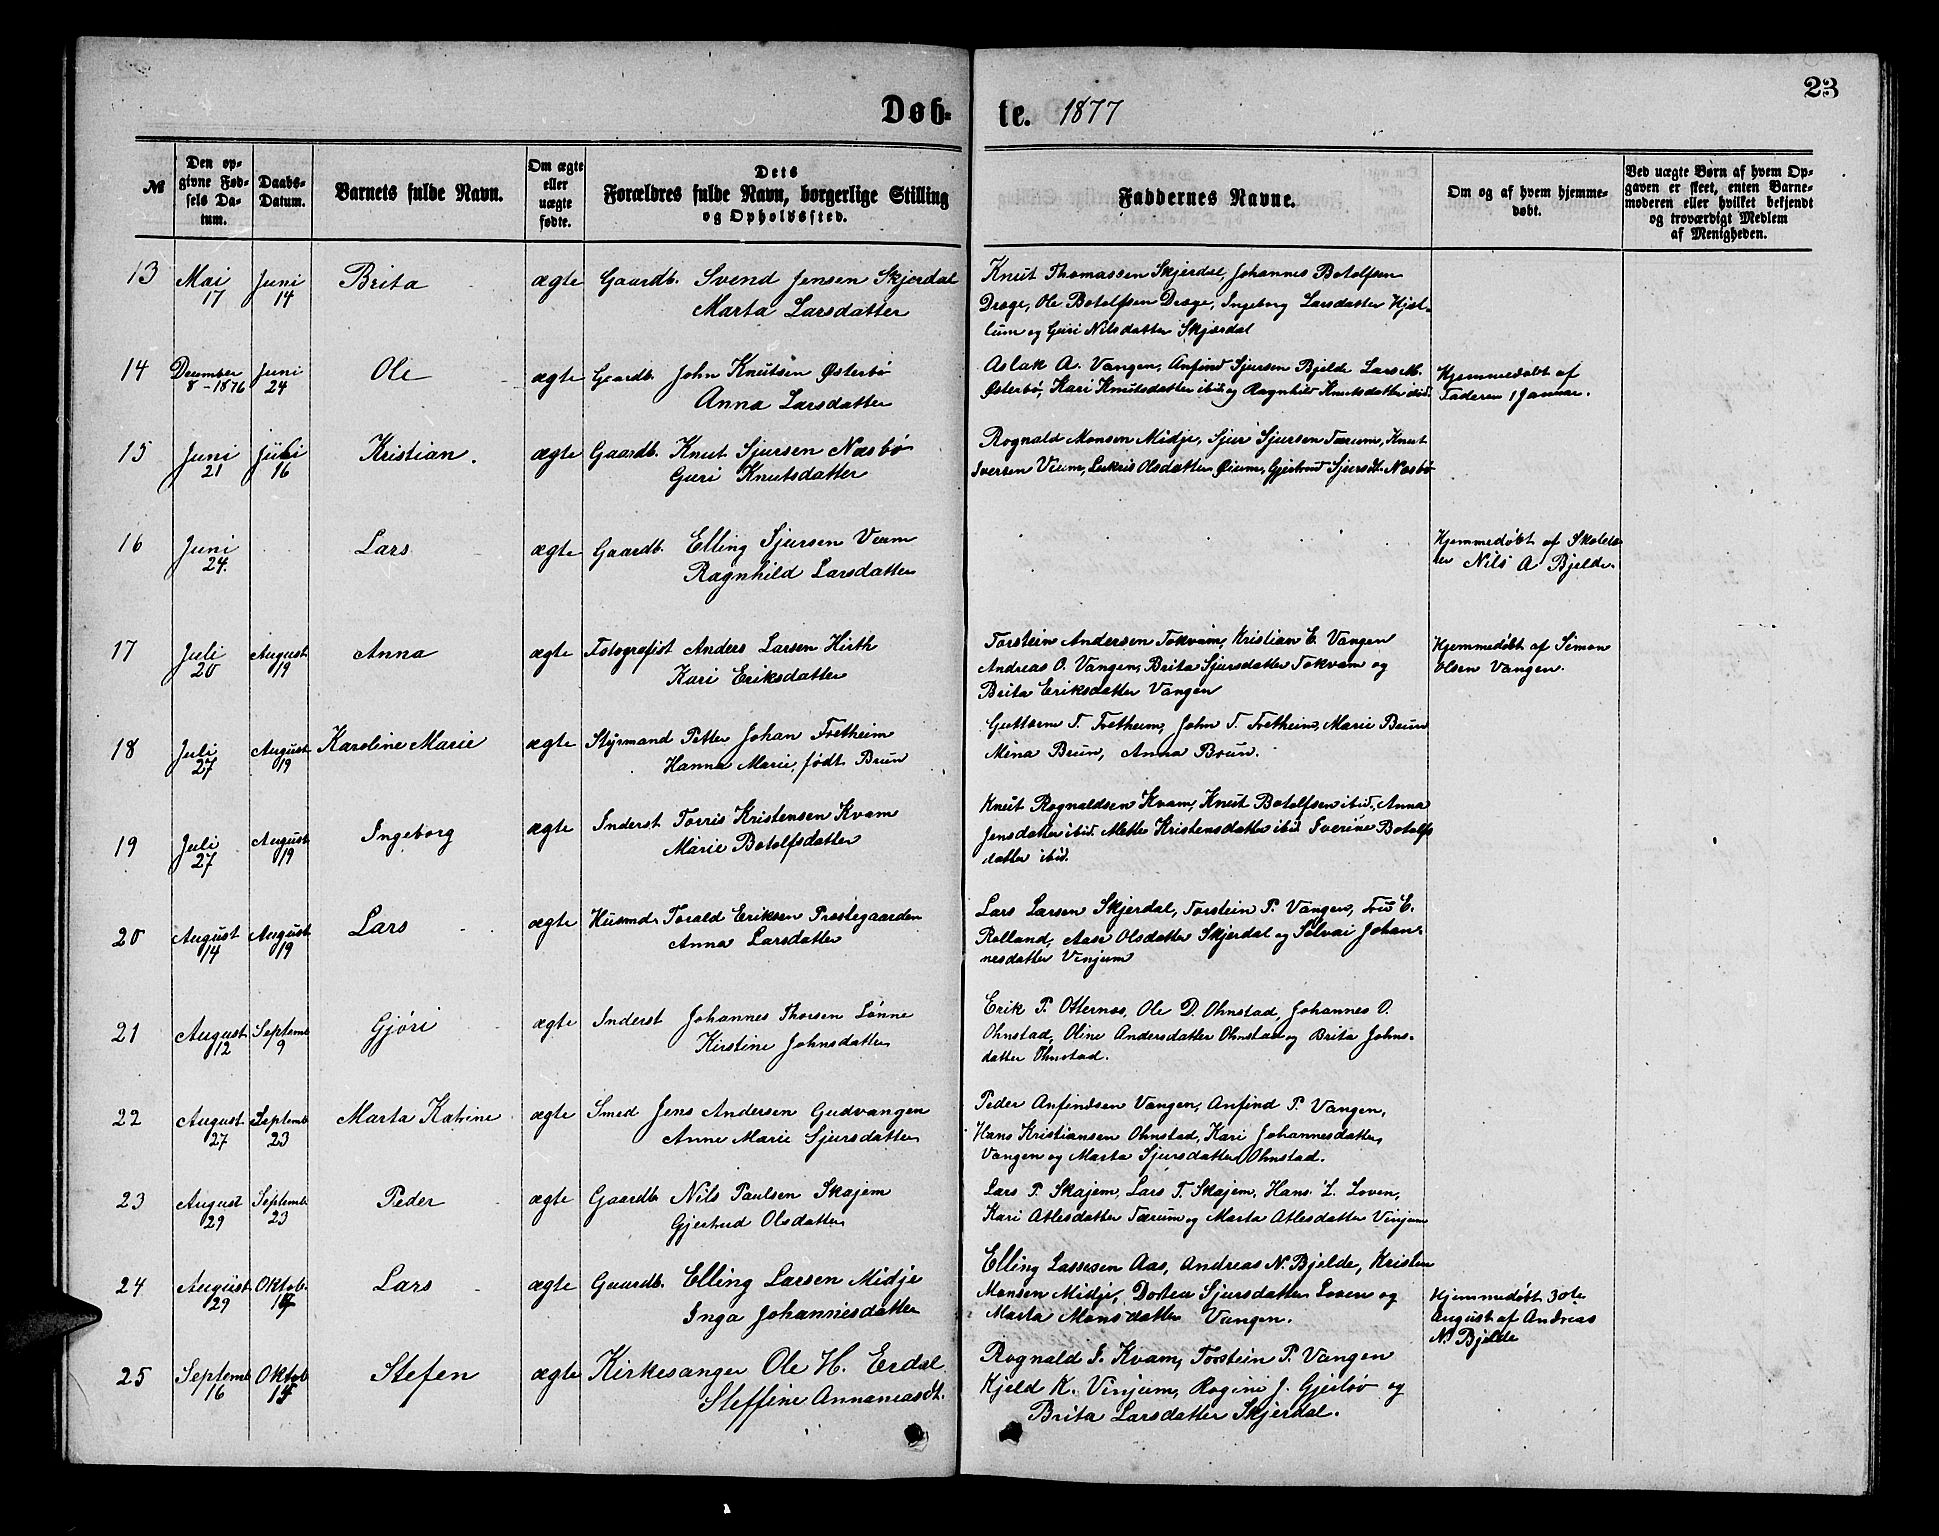 23
Døb-
te. 1877
№
Den op-
givne Fød-
sels Da-
tum.
Daabs-
Datum.
Barnets fulde Navn.
Om ægte
eller
uægte
fødte.
Dets
Forældres fulde Navn, borgerlige Stilling
og Opholdssted.
Faddernes Navne.
Om og af hvem hjemme-
døbt.
Ved uægte Børn af hvem Op-
gaven er skeet, enten Barne-
moderen eller hvilket bekjendt
og troværdigt Medlem
af Menigheden.
13 Mai 17 Juni 14 Brita ægte Gaardb. Svend Jensen Skjerdal
Marta Larsdatter
Knut Thomassen Skjerdal, Johannes Botolfsen
Drøge, Ole Botolfsen Drøge, Ingeborg Larsdatter Hjel-
lum og Guri Nilsdatter Skjerdal
14 December 8-1876 Juni 24 Ole ægte Gaardb. John Knutsen Østerbø
Anna Larsdatter
Aslak A. Vangen, Anfind Sjursen Bjelde Lars M.
Østerbø, Kari Knutsdatter ibid og Ragnhild Knutsdatter ibid.
Hjemmedøbt af
Faderen 1 Januar.
15 Juni 21 Juli 16 Kristian. ægte Gaardb. Knut Sjursen Næsbø
Guri Knutsdatter
Rognald Monsen Midje, Sjur Sjursen Tærum, Knut
Iversen Vium, Lukris Olsdatter Øium, Gjertrud Sjursdt. Næsbø
16 Juni 24. Lars ægte Gaardb. Elling Sjursen Vium
Ragnhild Larsdatter
Hjemmedøbt af Skolelæ-
rer Nils A Bjelde.
17 Juli 20 August 19 Anna ægte Fotografist Anders Larsen Hirth
Kari Eriksdatter
Torstein Andersen Tokvam, Kristian E. Vangen
Andreas O. Vangen, Brita Sjursdatter Tokvam og
Brita Eriksdatter Vangen
Hjemmedøbt af Simon
Olsen Vangen.
18 Juli 27 August 19 Karoline Marie ægte Styrmand Petter Johan Fretheim
Hanna Marie, født Brun
Guttorm T. Fretheim, John T. Fretheim, Marie Brun
Mina Brun, Anna Brun.
19 Juli 27 August 19 Ingeborg ægte Inderst Torris Kristensen Kvam
Marie Botolfsdatter
Knut Rognaldsen Kvam, Knut Botolfsen ibid, Anna
Jensdatter ibid. Mette Kristensdatter ibid Sverine Botolfs
datter ibid.
20 August 14 August 19 Lars ægte Husmd. Torald Eriksen Prestegaarden
Anna Larsdatter
Lars Larsen Skjerdal, Torstein P. Vangen, Fru E.
Rolland, Aase Olsdatter Skjerdal og Sølvai Johan-
nesdatter Vinjum
21 August 12 Septemb 9 Gjøri ægte Inderst Johannes Thorsen Lønne
Kirstine Johnsdatter
Erik P. Otternæs, Ole D. Ohnstad, Johannes O.
Ohnstad, Oline Andersdatter Ohnstad og Brita Johns-
datter Ohnstad.
22 August 27 Septemb 23 Marta Katrine ægte Smed Jens Andersen Gudvangen
Anne Marie Sjursdatter
Peder Anfindsen Vangen, Anfind P. Vangen,
Hans Kristiansen Ohnstad, Kari Johannesdatter
Vangen og Marta Sjursdatter Ohnstad.
23 August 29 Septemb 23 Peder ægte Gaardb Nils Paulsen Skajem
Gjertrud Olsdatter
Lars P. Skajem, Lars T. Skajem, Hans L. Loven,
Kari Atlesdatter Tærum og Marta Atlesdatter Vinjum
24 August 29 Oktob. 14 Lars ægte Gaardb. Elling Larsen Midje
Inga Johannesdatter
Elling Lassesen Aas, Andreas N. Bjelde, Kristen
Monsen Midje, Dortea Sjursdatter Loven og
Marta Monsdatter Vangen.
Hjemmedøbt 30te
August af Andreas
N. Bjelde
25 Septemb 16 Oktob 14 Stefen ægte Kirkesanger Ole H. Erdal
Steffine Annaniasdt.
Rognald J. Kvam, Torstein P. Vangen
Kjeld K. Vinjum, Rogine J. Gjerløv og
Brita Larsdatter Skjerdal.